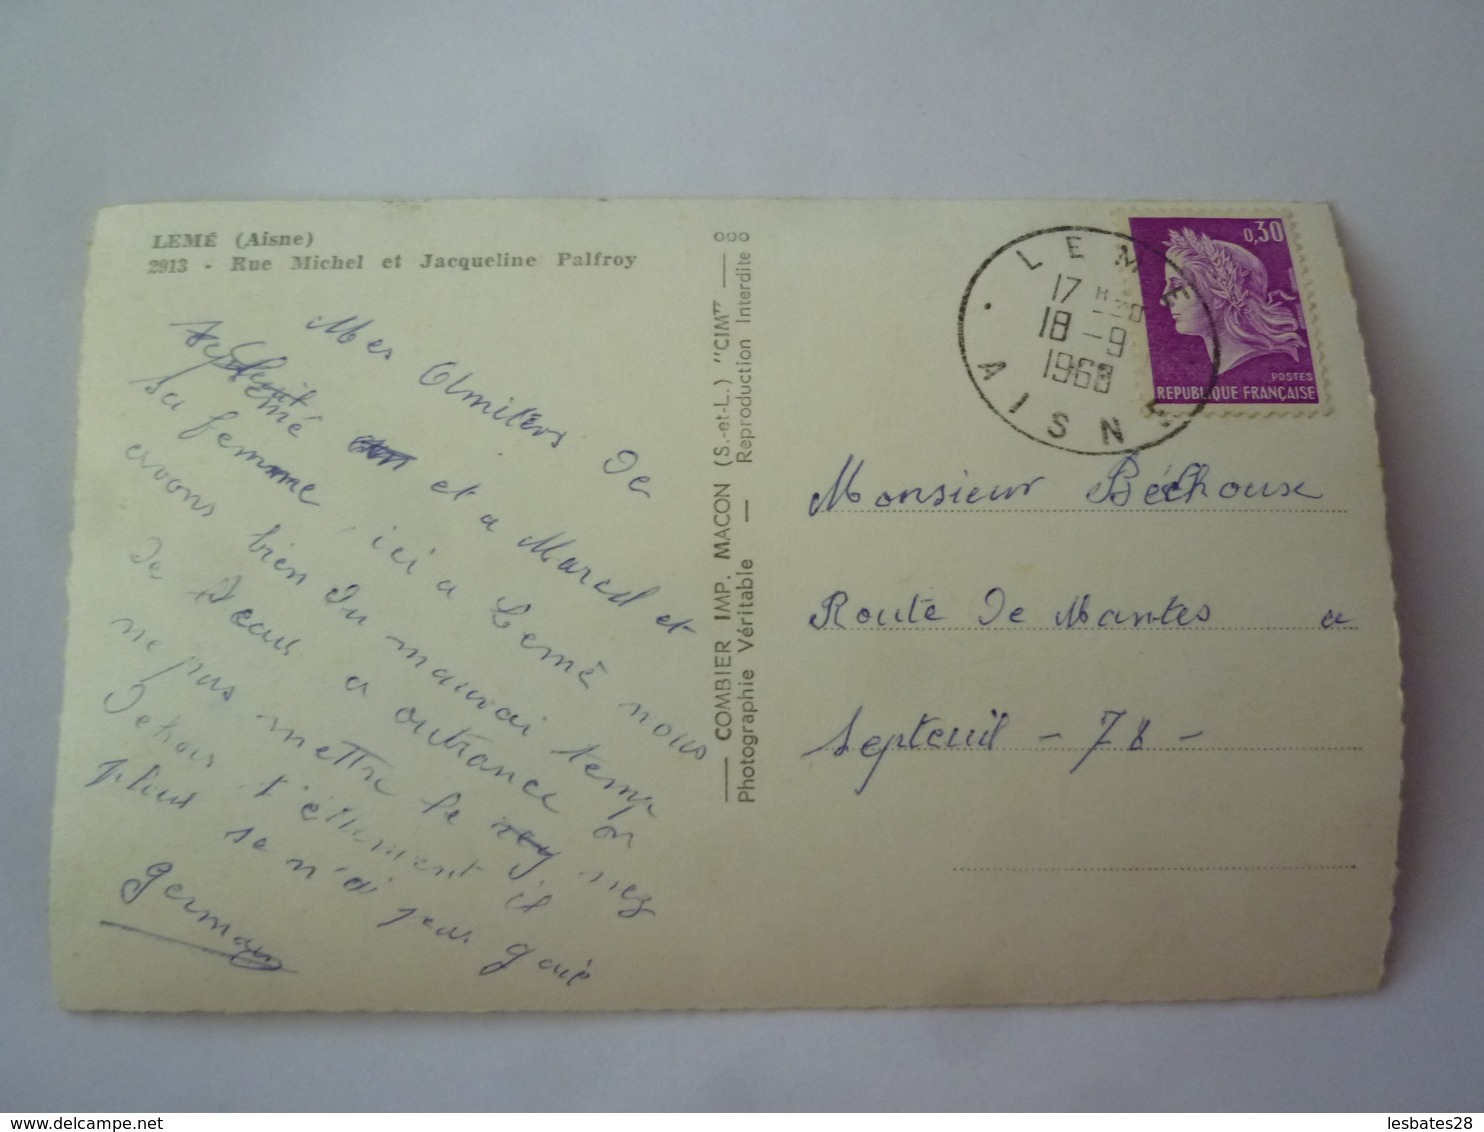 LEMÉ (Aisne)
2913 - Rue Michel et Jacqueline Palfroy
Mes de
Lemé et a Marcel et
sa femme, ici a Lemé nous
avons bien du mauvai temp
de a outrance on
ne pas mettre le nez
dehors il
pleut se n'ai pas gaie
germain
COMBIER IMP. MACON (S.-et-L.) "CIM"
Photographie Véritable — Reproduction Interdite
LEME
17 H 30
18 - 9
1968
AISNE
0,30
POSTES
REPUBLIQUE FRANÇAISE
Monsieur Béchoux
Route de Mantes a
Septeuil - 78 -
lesbates28